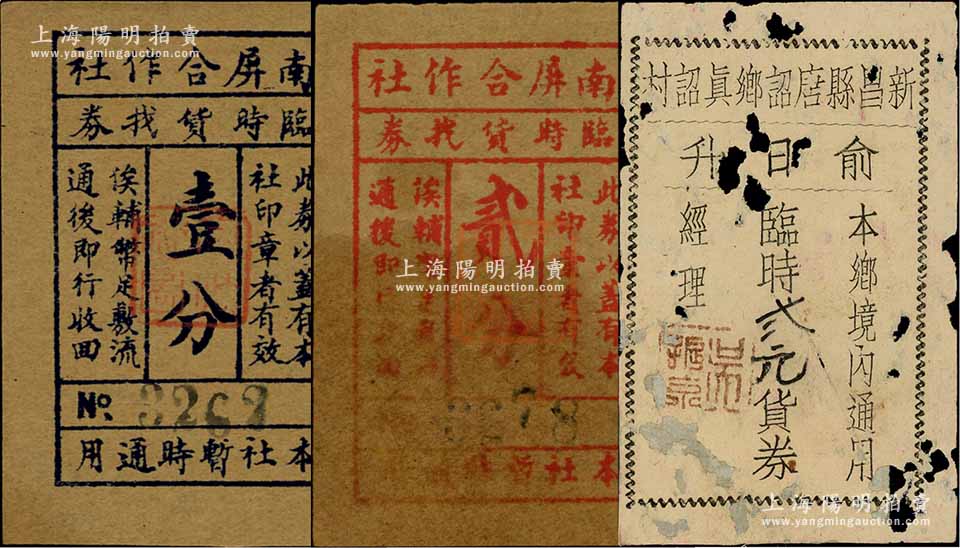 上海陽明拍賣
www.yangmingauction.com
南屏合作社
臨時貨找券
此券以蓋有本
社印章者有效
壹分
俟輔幣足敷流
通後即行收回
No. 3262
本社暫時通用
上海陽明拍賣
www.yangmingauction.com
南屏合作社
臨時貨找券
此券以蓋有本
社印章者有
貳分
俟輔
通後即
3278
本社暫
上海陽明拍賣
www.yangmingauction.com
新昌縣唐詔鄉真詔村
俞日升經理
本鄉境內通用
臨時弍元貨券
上海陽明拍賣
www.yangmingauction.com